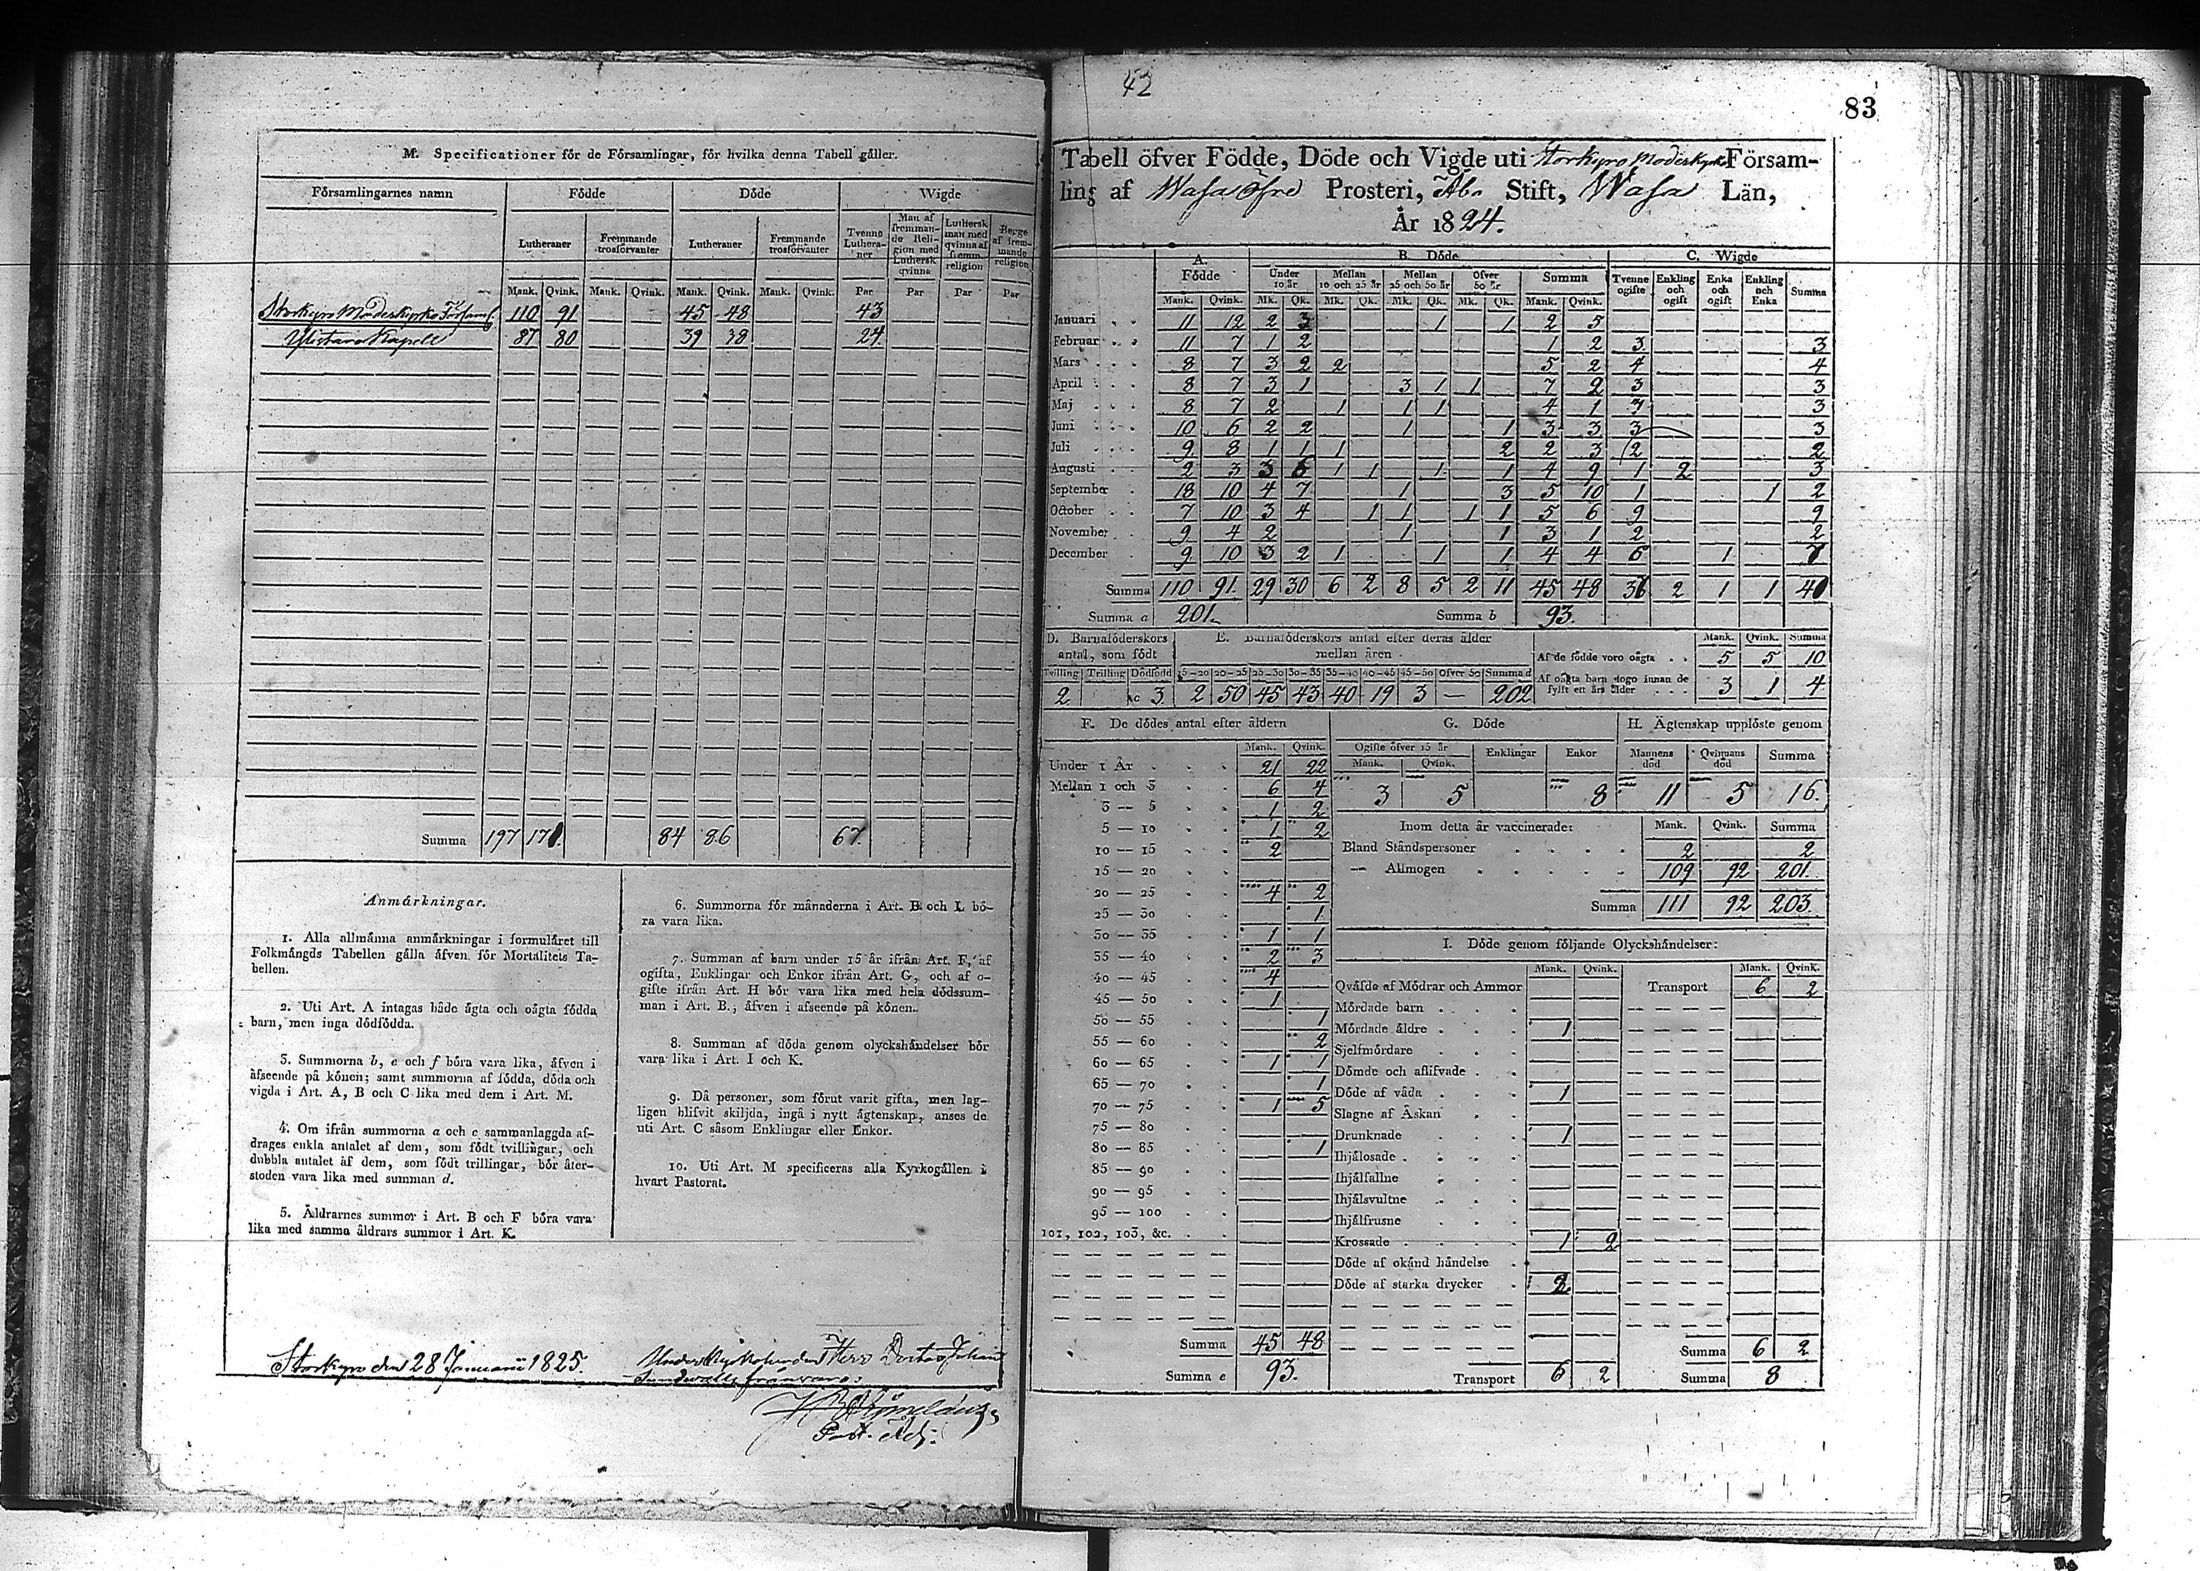 M. Specificationer för de Församlingar, för hvilka denna Tabell gäller.
Församlingarnes namn Födde Döde Wigde
Lutheraner Fremmande trosförvanter Lutheraner Fremmande trosförvanter Tvenne Lutheraner Man af fremmande Religion med Luthersk qvinna Luthersk man med qvinna af fremm. religion Begge af fremmande religion
Mank. Qvink. Mank. Qvink. Mank. Qvink. Mank. Qvink. Par Par Par Par
Storkyro Moderkyrko Församl 110 91 45 48 43
Ylistaro Kapell 87 80 39 38 24
Summa 197 171 84 86 67
Anmärkningar.
1. Alla allmänna anmärkningar i formuläret till
Folkmängds Tabellen gälla äfven för Mortalitets Ta-
bellen.
2. Uti Art. A intagas både ägta och oägta födda
barn, men inga dödfödda.
3. Summorna b, e och f böra vara lika, äfven i
afseende på könen; samt summorna af födda, döda och
vigda i Art. A, B och C lika med dem i Art. M.
4. Om ifrån summorna a och c sammanlaggda af-
drages enkla antalet af dem, som födt tvillingar, och
dubbla antalet af dem, som födt trillingar, bör åter-
stoden vara lika med summan d.
5. Åldrarnes summor i Art. B och F böra vara
lika med samma åldrars summor i Art. K.
6. Summorna för månaderna i Art. B och L bö-
ra vara lika.
7. Summan af barn under 15 år ifrån Art. F, af
ogifta, Enklingar och Enkor ifrån Art. G, och af o-
gifte ifrån Art. H bör vara lika med hela dödssum-
man i Art. B.; äfven i afseende på könen.
8. Summan af döda genom olyckshändelser bör
vara lika i Art. I och K.
9. Då personer, som förut varit gifta, men lag-
ligen blifvit skiljda, ingå i nytt ägtenskap, anses de
uti Art. C såsom Enklingar eller Enkor.
10. Uti Art. M specificeras alla Kyrkogällen i
hvart Pastorat.
Storkyro den 28 Januarii 1825.
Under Kyrkoherden Herr Doctor Johan
Sundwalls frånvaro:
Past. Adj.
42
83
Tabell öfver Födde, Döde och Vigde uti Storkyro Moderkyrko Försam-
ling af Wasa Öfre Prosteri, Åbo Stift, Wasa Län,
År 1824.
A. Födde B. Döde C. Wigde
Under 10 år Mellan 10 och 25 år Mellan 25 och 50 år Öfver 50 år Summa Tvenne ogifte Enkling och ogift Enka och ogift Enkling och Enka Summa
Mank. Qvink. Mk. Qk. Mk. Qk. Mk. Qk. Mk. Qk. Mank. Qvink.
Januari 11 12 2 3 1 1 2 5
Februar 11 7 1 2 1 2 3 3
Mars 8 7 3 2 2 5 2 4 4
April 8 7 3 1 3 1 1 7 2 3 3
Maj 8 7 2 1 1 1 4 1 3 3
Juni 10 6 2 2 1 1 3 3 3 3
Juli 9 8 1 1 1 2 2 3 2 2
Augusti 2 3 3 6 1 1 1 1 4 9 1 2 3
September 18 10 4 7 1 3 5 10 1 1 2
October 7 10 3 4 1 1 1 1 5 6 9 9
November 9 4 2 1 1 3 1 2 2
December 9 10 3 2 1 1 1 4 4 6 1 7
Summa 110 91. 29 30 6 2 8 5 2 11 45 48 2 1 1
Summa a 201. Summa b 93.
D. Barnaföderskors antal, som födt E. Barnaföderskors antal efter deras ålder mellan åren Mank. Qvink. Summa
Tvilling Trilling Dödfödd 15–20 20–25 25–30 30–35 35–40 40–45 45–50 Öfver 50 Summa d
2 c 3 2 50 45 43 40 19 3 — 202
Af de födde voro oägta 5 5 10
Af oägta barn dogo innan de fyllt ett års ålder 3 1 4
F. De dödes antal efter åldern
Mank. Qvink.
Under 1 År 21 22
Mellan 1 och 3 6 4
3 — 5 1 2
5 — 10 1 2
10 — 15 2
15 — 20
20 — 25 4 2
25 — 30 1
30 — 35 1 1
35 — 40 2 3
40 — 45 4
45 — 50 1
50 — 55 1
55 — 60 2
60 — 65 1 1
65 — 70 1
70 — 75 1 5
75 — 80
80 — 85 1
85 — 90
90 — 95
95 — 100
101, 102, 103, &c.
Summa 45 48
Summa e 93.
G. Döde
Ogifte öfver 15 år Enklingar Enkor
Mank. Qvink.
3 5 8
H. Ägtenskap upplöste genom
Mannens död Qvinnans död Summa
11 5 16.
Inom detta år vaccinerade: Mank. Qvink. Summa
Bland Ståndspersoner 2 2
— Allmogen 109 92 201.
Summa 111 92 203.
I. Döde genom följande Olyckshändelser:
Mank. Qvink. Mank. Qvink.
Qväfde af Mödrar och Ammor Transport 6 2
Mördade barn
Mördade äldre 1
Sjelfmördare
Dömde och aflifvade
Döde af våda 1
Slagne af Åskan
Drunknade 1
Ihjälosade
Ihjälfallne
Ihjälsvultne
Ihjälfrusne
Krossade 1 2
Döde af okänd händelse
Döde af starka drycker 2
Summa 6 2
Transport 6 2 Summa 8